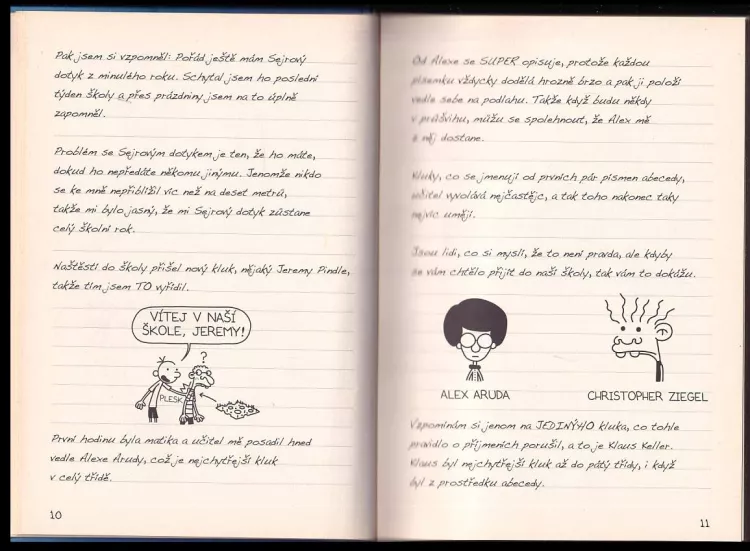 Pak jsem si vzpomněl: Pořád ještě mám Sejrový
dotyk z minulého roku. Schytal jsem ho poslední
týden školy a přes prázdniny jsem na to úplně
zapomněl.
Problém se Sejrovým dotykem je ten, že ho máte,
dokud ho nepředáte někomu jinýmu. Jenomže nikdo
se ke mně nepřiblížil víc než na deset metrů,
takže mi bylo jasný, že mi Sejrový dotyk zůstane
celý školní rok.
Naštěstí do školy přišel nový kluk, nějaký Jeremy Pindle,
takže tím jsem TO vyřídil.
VÍTEJ V NAŠÍ
ŠKOLE, JEREMY!
?
PLESK
První hodinu byla matika a učitel mě posadil hned
vedle Alexe Arudy, což je nejchytřejší kluk
v celý třídě.
10
Od Alexe se SUPER opisuje, protože každou
písemku vždycky dodělá hrozně brzo a pak ji položí
vedle sebe na podlahu. Takže když budu někdy
v průšvihu, můžu se spolehnout, že Alex mě
z něj dostane.
Kluky, co se jmenují od prvních pár písmen abecedy,
učitel vyvolává nejčastějc, a tak toho nakonec taky
nejvíc umějí.
Jsou lidi, co si myslí, že to není pravda, ale kdyby
se vám chtělo přijít do naší školy, tak vám to dokážu.
ALEX ARUDA
CHRISTOPHER ZIEGEL
Vzpomínám si jenom na JEDINÝHO kluka, co tohle
pravidlo o příjmeních porušil, a to je Klaus Keller.
Klaus byl nejchytřejší kluk až do pátý třídy, i když
byl z prostředku abecedy.
11